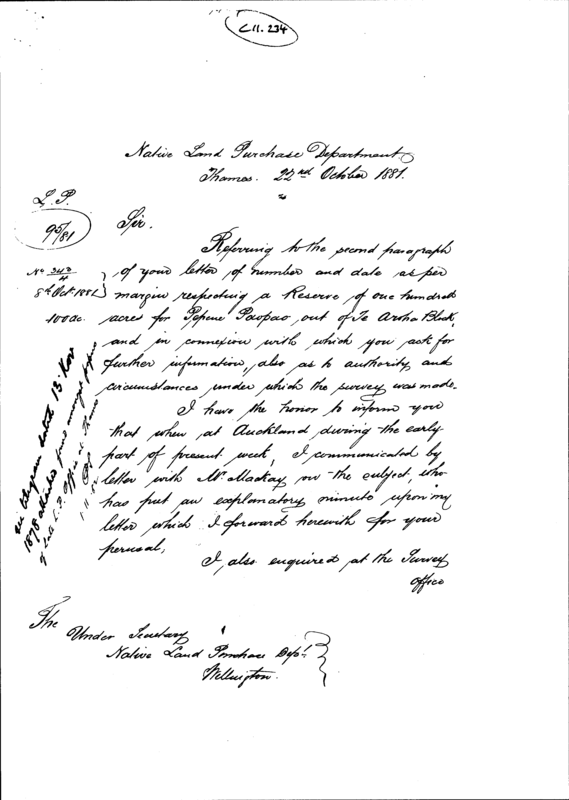 C11.234
Native Land Purchase Department
Thames. 22nd October 1881.
L.P.
95/81
Sir.
Referring to the second paragraph
No 342/4
of your letter of number and date as per
8th Oct. 1881
margin respecting a Reserve of one hundred
100 ac.
acres for Pepene Paopao, out of Te Aroha Block,
and in connexion with which you ask for
further information, also as to authority and
circumstances under which the survey was made.
I have the honor to inform you
that when at Auckland during the early
part of present week, I communicated by
letter with Mr Mackay on the subject, who
has put an explanatory minute upon my
letter which I forward herewith for your
perusal,
I also enquired at the Survey
office
see telegram dated 13 Nov
1878 attached found amongst papers
of late L.P. Officer at Thames
The
Under Secretary
Native Land Purchase Dept
Wellington.